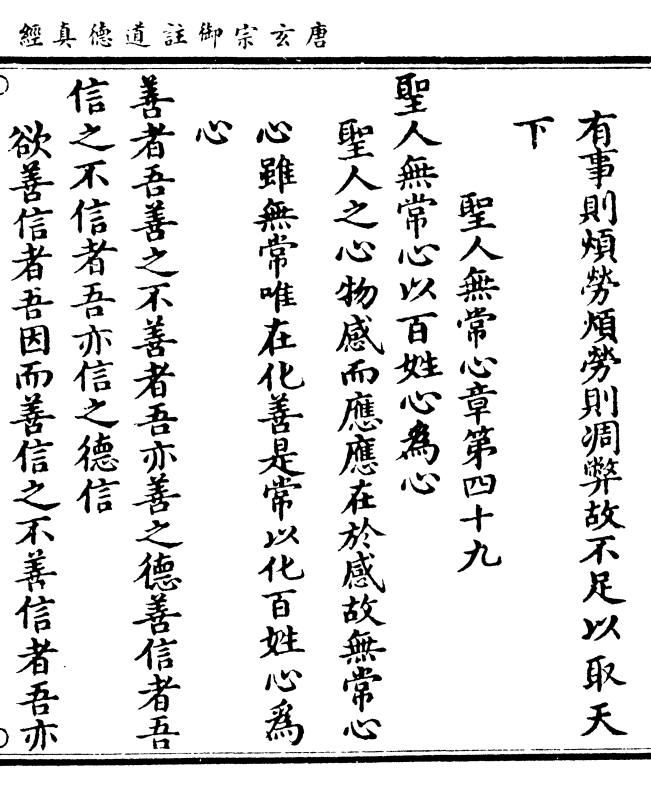 唐玄宗御註道德真經
有事則煩勞煩勞則凋弊故不足以取天
下
聖人無常心章第四十九
聖人無常心以百姓心為心
聖人之心物感而應應在於感故無常心
心雖無常唯在化善是常以化百姓心為
心
善者吾善之不善者吾亦善之德善信者吾
信之不信者吾亦信之德信
欲善信者吾因而善信之不善信者吾亦